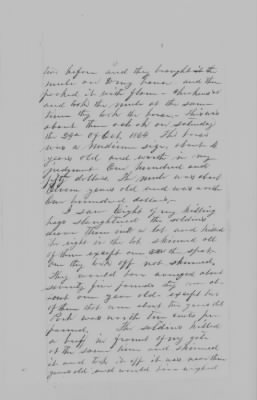 two before and they brought it the
mule on to my house and then
packed it with flour - chickens &c
and took the mule at the same
time they took the horse. This was
about three oclock on Saturday
the 29th of Oct, 1864. The horse
was a medium size, about 4
years old and worth in my
judgment One hundred and
fifty dollars. The mule was about
eleven years old and was worth
one hundred dollars,-
I saw Eight of my killing
hogs slaughtered. The soldiers
drove them out a lot and killed
in the lot skinned all
of them except one on the spot.
One they took off not skinned.
They would have averaged about
seventy five pounds they were ab
out one year old except two
of them that were about two years old
Pork was worth ten cents per
pound, The soldiers killed
a beef in front of my gate
at the same time and skinned
it and took it off it was more than
years old and would have weighed